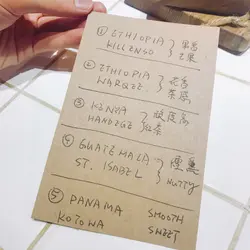 ① ETHIOPIA
KILLENSO
② ETHIOPIA
WARQEE.
花香
茶感
③ KENYA
HANDEGE
紅茶
④ GUATEMALA
ST. ISABEL
NUTTY
⑤ PANAMA
KOTOWA
SMOOTH
SWEET